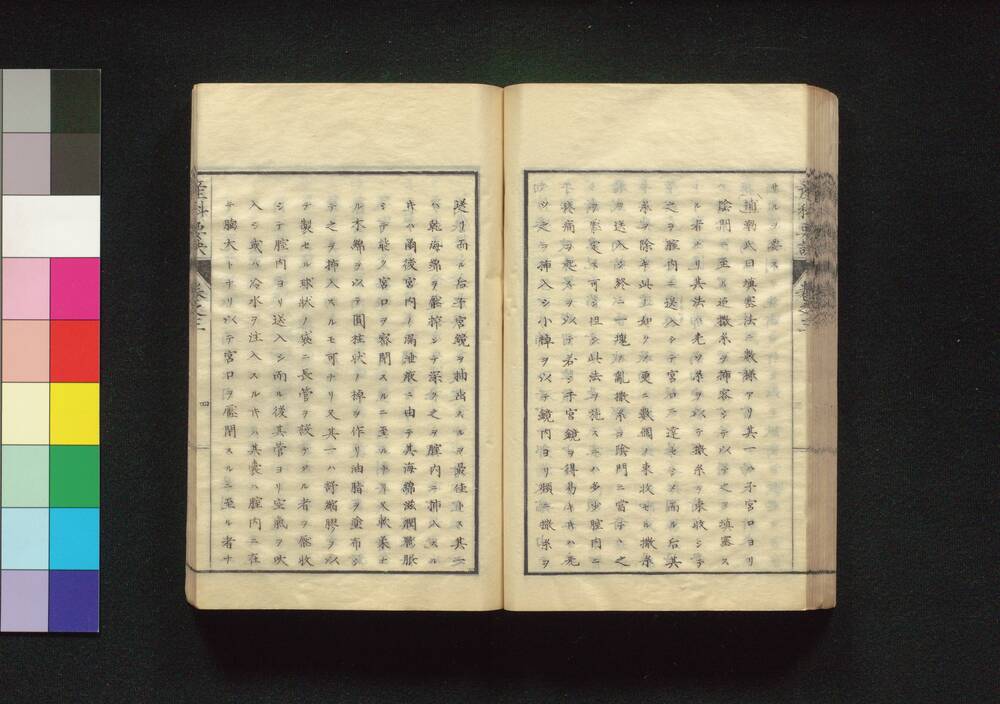 サルヲ要ス
氏曰填塞法ニ數樣アリ其一ハ子宮口ヨリ
陰門ニ至ル迄撒糸ヲ挿容シテ以テ之ヲ填塞ス
ル者ナリ其法ハ先ツ糸ヲ以テ撒糸ヲ束收シテ
之ヲ腟內ニ送入シテ宮口ニ達セシメ而ル后其
糸ヲ除キ此ノ如クシテ更ニ數個ノ束收セル撒糸
ヲ送入シ終ニ一塊ノ亂撒糸ヲ陰門ニ當ツ之
ヲ緊定ス可シ但シ此法ヲ施スニハ多少腟內ニ
疼痛ヲ起スヲ以テ若シ子宮鏡ヲ得易キハ先
ツ之ヲ挿入シ小棹ヲ以テ鏡內ヨリ頻ニ撒糸ヲ
送リ而ル后子宮鏡ヲ抽出スルヲ最佳トス其二
ハ乾海綿ヲ緊搾シテ深ク之ヲ腟內ニ挿入スル
キハ爾後宮內ノ漏泄液ニ由テ其海綿滋潤膨脹
シテ能ク宮口ヲ密閉スルニ至ル又軟柔ナ
ル木綿ヲ以テ圓柱狀ノ棹ヲ作リ油脂ヲ塗布シ
テ之ヲ挿入スルモ可ナリ又其一ハ護膠ヲ以
テ製セル球狀ノ袋ニ長管ヲ設ケタル者ヲ壓收
シテ腟內ヨリ送入シ而ル後其管ヨリ空氣ヲ吹
入シ或ハ冷水ヲ注入スルキハ其囊ハ腟內ニ在
テ膨大トナリ以テ宮口ヲ壓閉スルニ至ル者ナ
產科要訣 卷之三
四